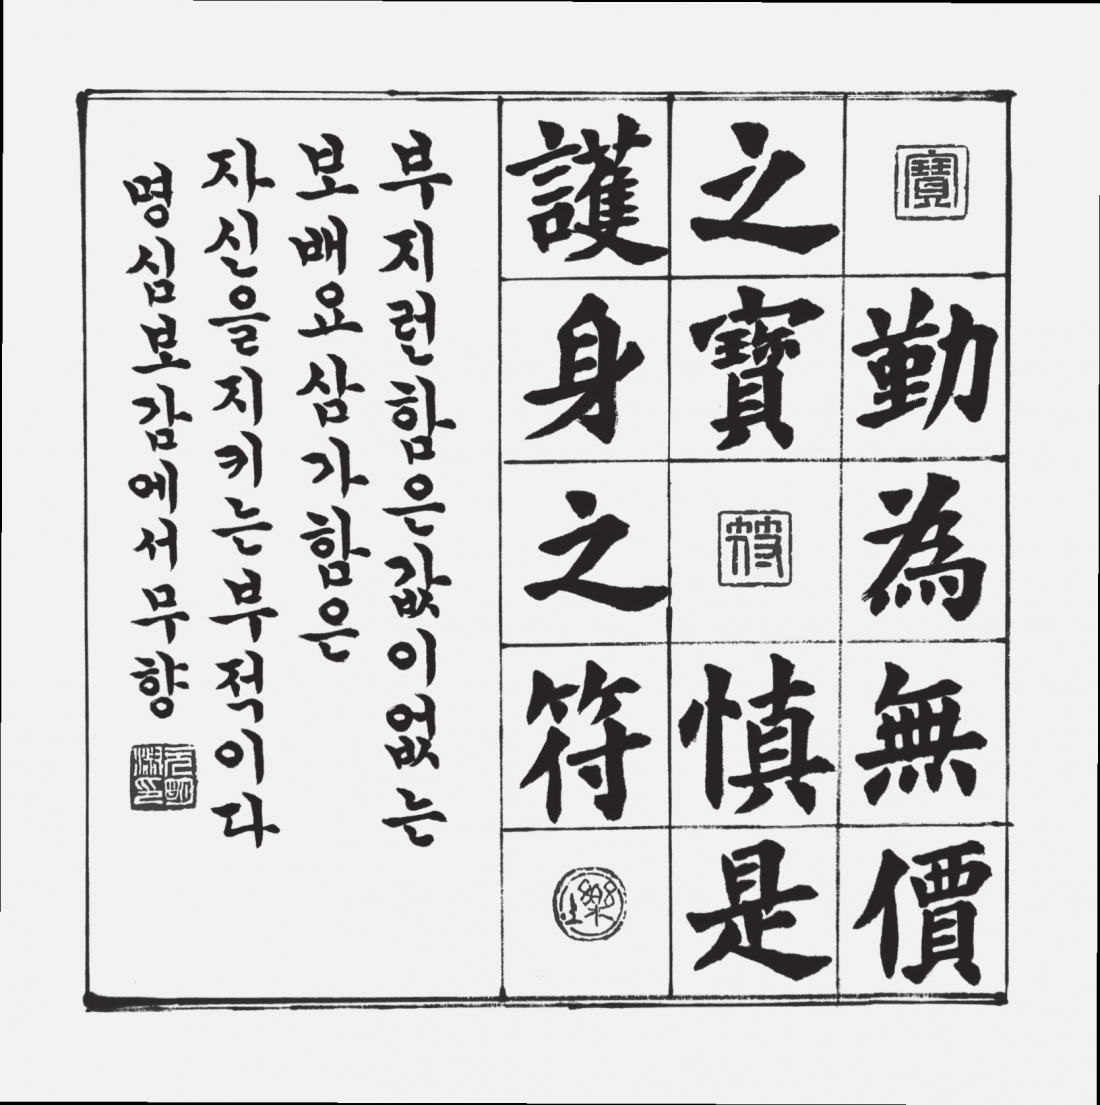 寶
勤為無價
之寶
符
慎是
護身之符
부지런함은값이없는
보배요삼가함은
자신을지키는부적이다
명심보감에서무향